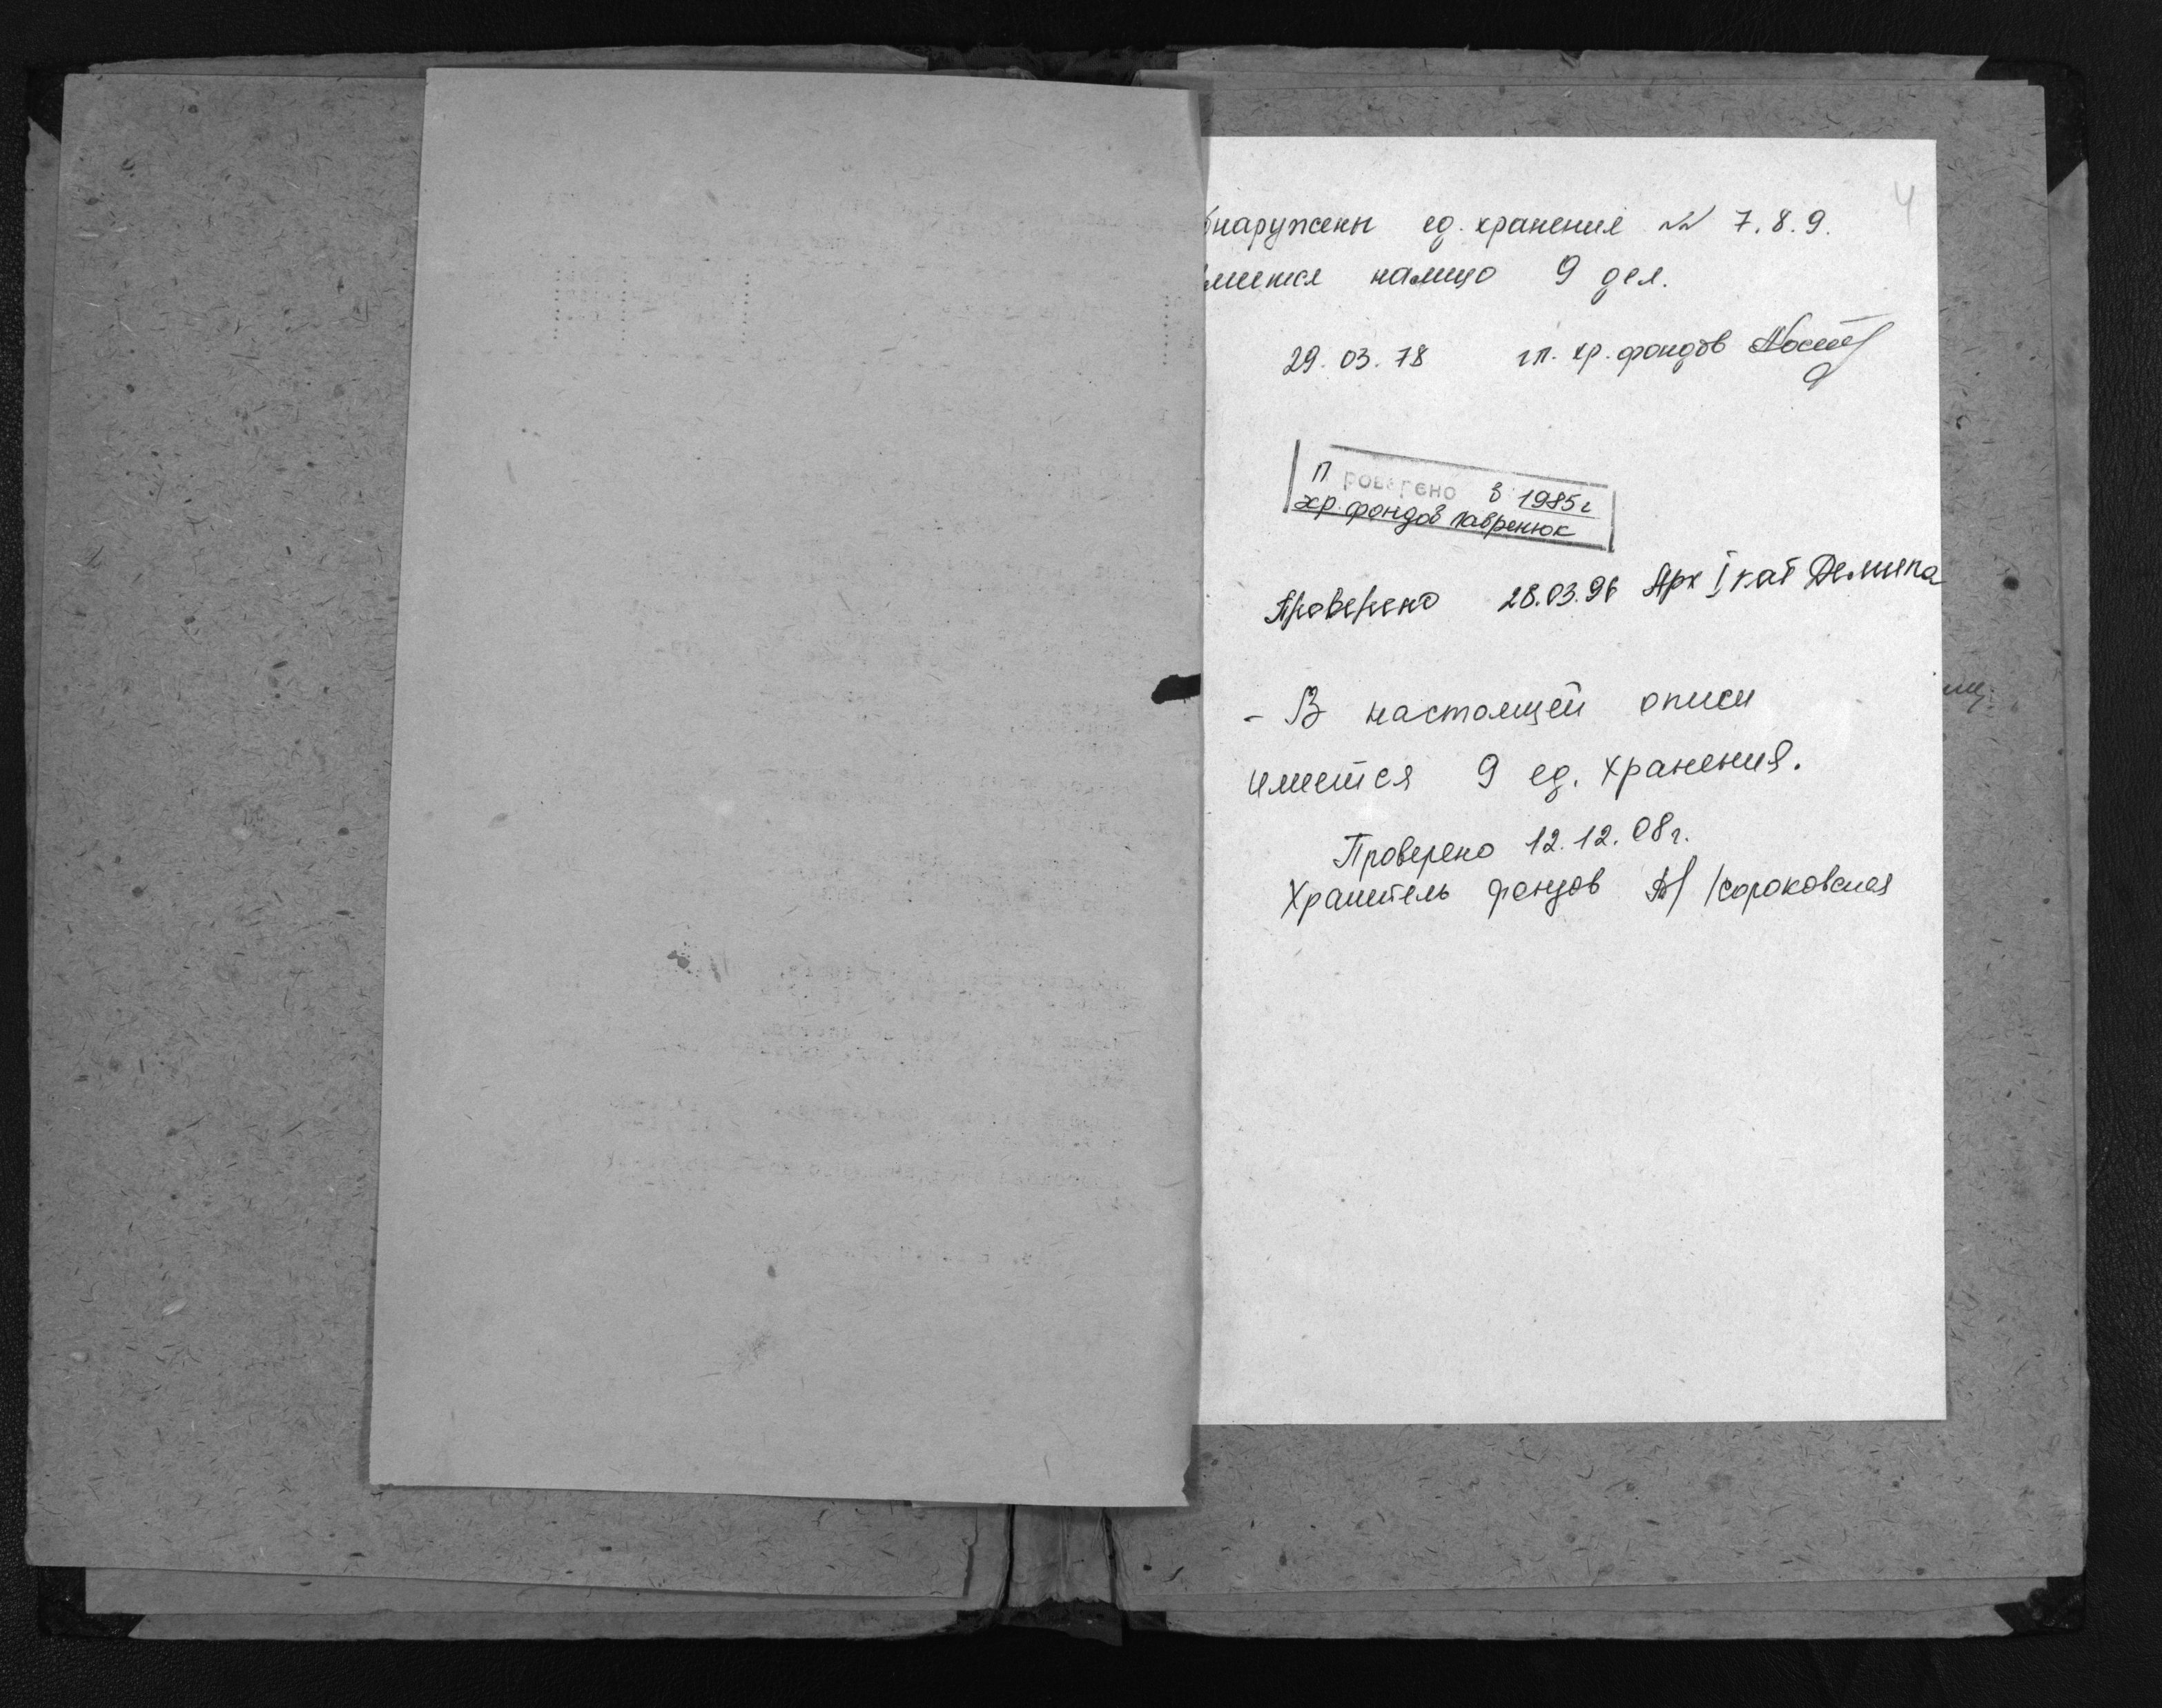 4
бнаружены ед. хранения №№ 7. 8. 9.
меется налицо 9 дел.
29. 03. 78 гл. хр. фондов
Проверено в 1985 г
хр. фондов Лавренюк
Проверено 28.03.96 Арх I кат Демина
- В настоящей описи
имеется 9 ед. хранения.
Проверено 12. 12. 08 г.
Хранитель фондов /Сороковская